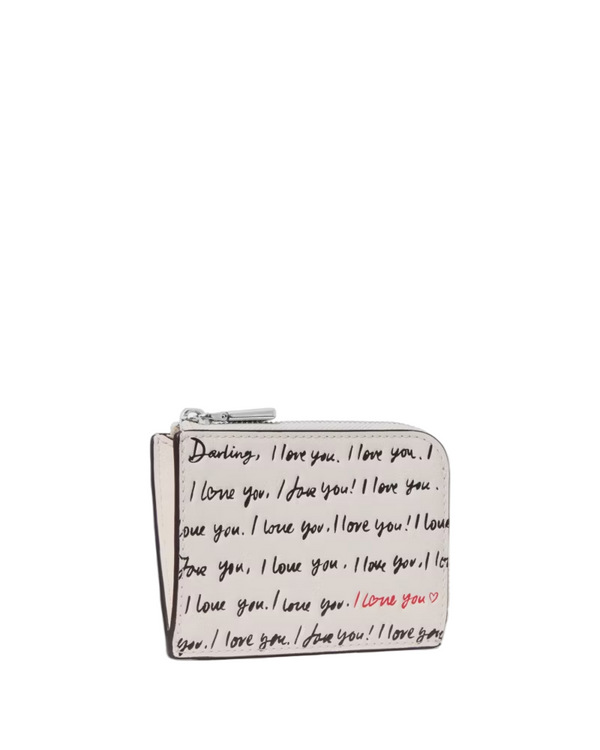 Darling, I love you. I love you. I
I love you, I love you! I love you.
love you. I love you. I love you! I love
love you, I love you. I love you. I lo
I love you. I love you. I love you♡
you. I love you. I love you! I love you